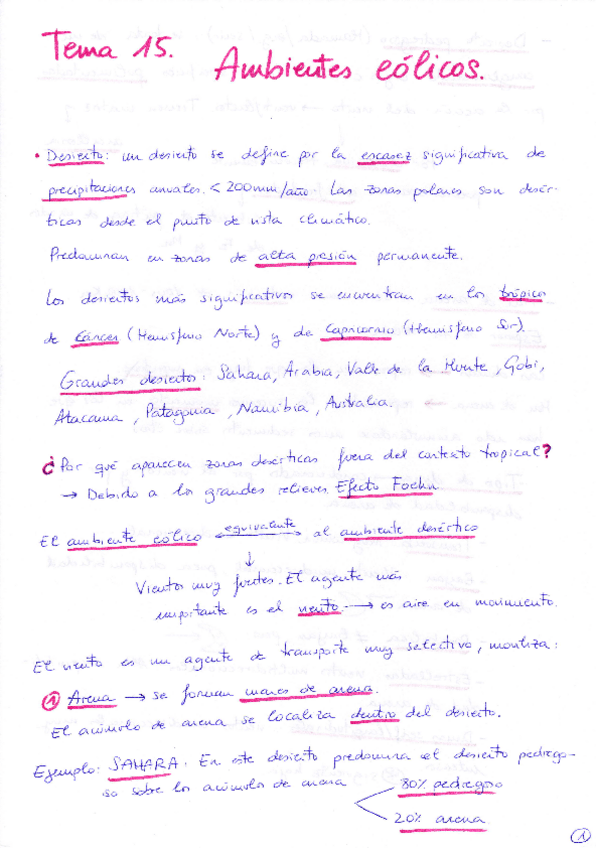 Tema 15.
Ambientes eólicos.
• Desierto: un desierto se define por la escasez significativa de
precipitaciones anuales. < 200mm/año. Las zonas polares son desér-
ticas desde el punto de vista climático.
Predominan en zonas de alta presión permanente.
Los desiertos más significativos se encuentran en los trópicos
de Cáncer (Hemisferio Norte) y de Capricornio (Hemisferio Sur).
Grandes desiertos: Sahara, Arabia, Valle de la Muerte, Gobi,
Atacama, Patagonia, Namibia, Australia.
¿Por qué aparecen zonas desérticas fuera del contexto tropical?
→ Debido a los grandes relieves. Efecto Foehn
El ambiente eólico ←equivalente→ al ambiente desértico
↓
Vientos muy fuertes. El agente más
importante es el viento → es aire en movimiento.
El viento es un agente de transporte muy selectivo, moviliza:
① Arena → se forman mares de arena.
El acúmulo de arena se localiza dentro del desierto.
Ejemplo: SAHARA. En este desierto predomina el desierto pedrego-
so sobre los acúmulos de arena
80% pedregoso
20% arena
1